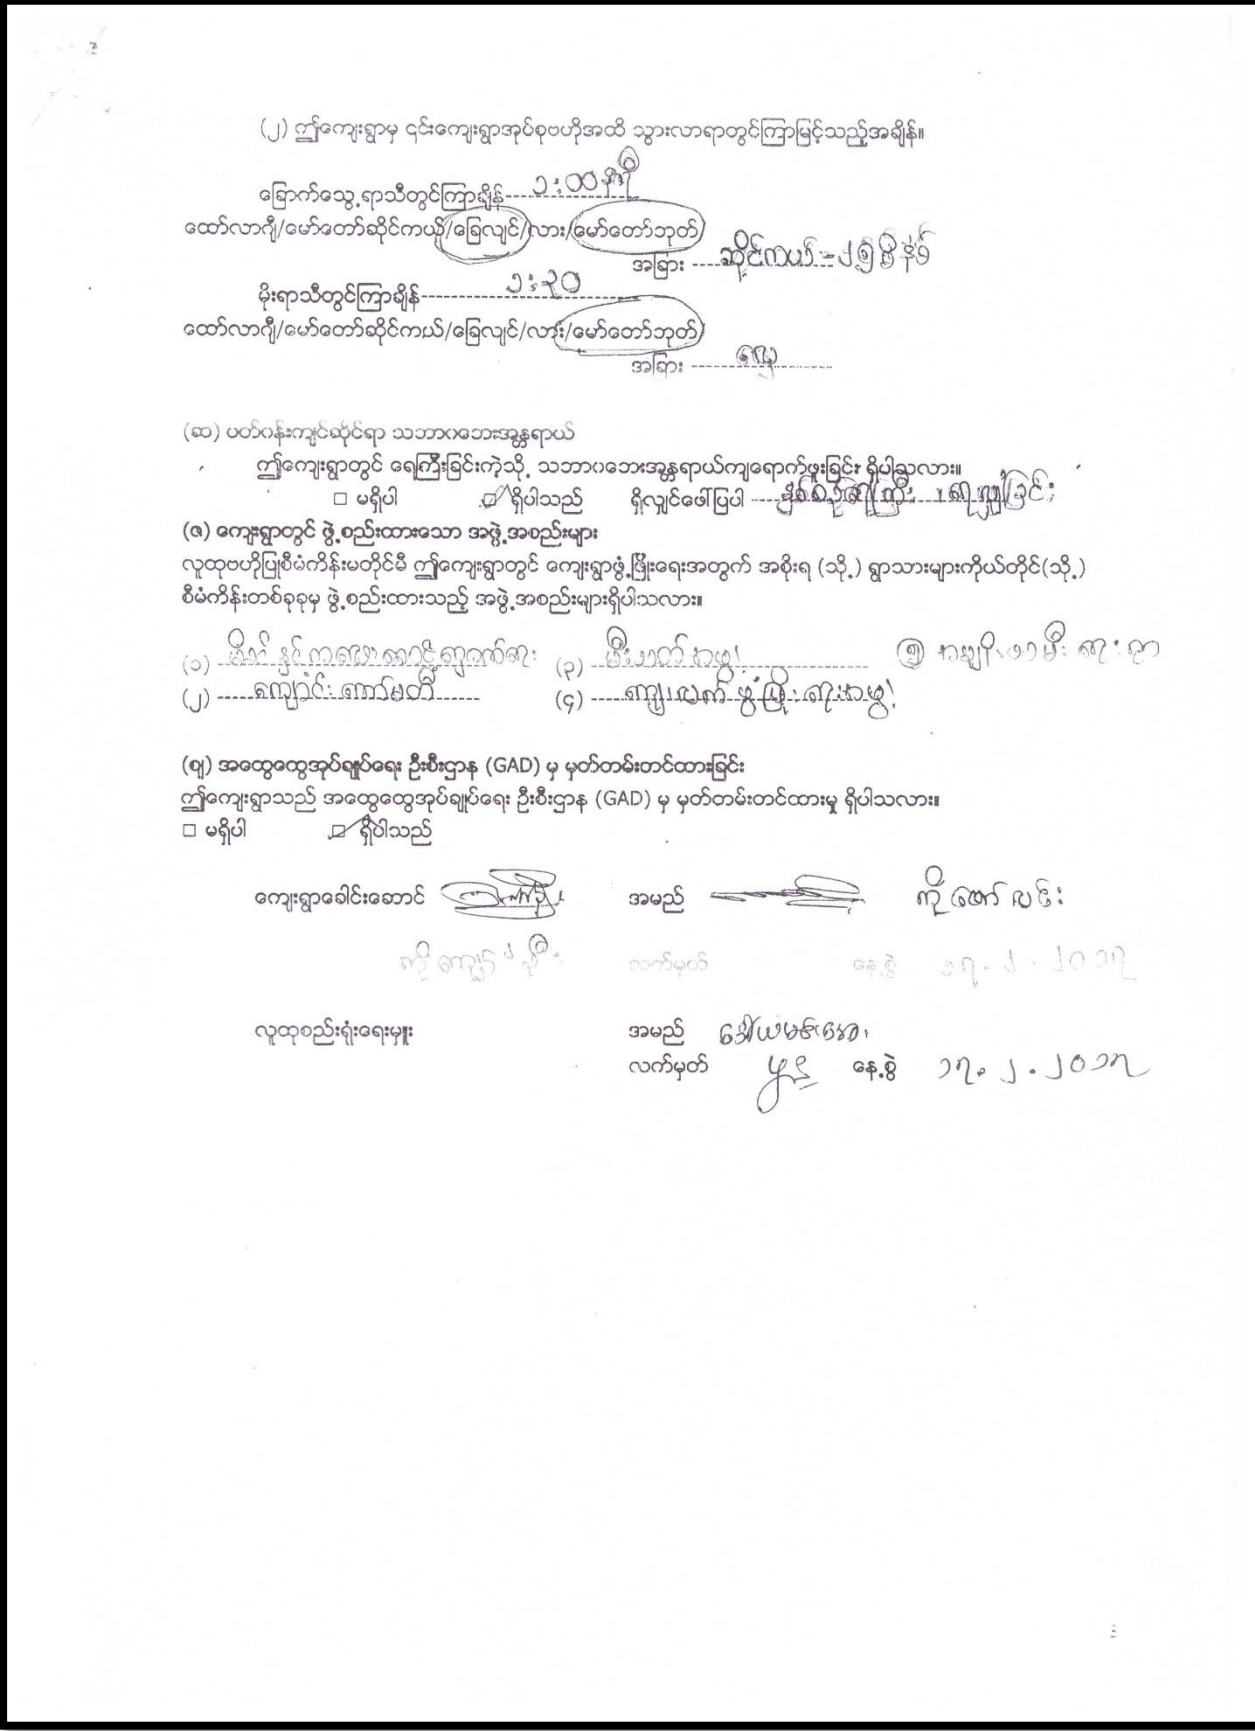 (၂) ဤကျေးရွာမှ ၎င်းကျေးရွာအုပ်စုဗဟိုအထိ သွားလာရာတွင်ကြာမြင့်သည့်အချိန်။
ခြောက်သွေ့ရာသီတွင်ကြာချိန် ၁:၀၀ နာရီ
ထော်လာဂျီ/မော်တော်ဆိုင်ကယ်/ခြေလျင်/လား/မော်တော်ဘုတ်/
အခြား ဆိုင်ကယ် = ၂၅ မိနစ်
မိုးရာသီတွင်ကြာချိန် ၁:၃၀
ထော်လာဂျီ/မော်တော်ဆိုင်ကယ်/ခြေလျင်/လား/မော်တော်ဘုတ်/
အခြား လှေ
(ဆ) ပတ်ဝန်းကျင်ဆိုင်ရာ သဘာဝဘေးအန္တရာယ်
ဤကျေးရွာတွင် ရေကြီးခြင်းကဲ့သို့ သဘာဝဘေးအန္တရာယ်ကျရောက်ဖူးခြင်း ရှိပါသလား။
□ မရှိပါ ☑ ရှိပါသည် ရှိလျှင်ဖော်ပြပါ နှစ်စဉ်ရေကြီး ၊ ရေလျှံခြင်း
(ဇ) ကျေးရွာတွင် ဖွဲ့စည်းထားသော အဖွဲ့အစည်းများ
လူထုဗဟိုပြုစီမံကိန်းမတိုင်မီ ဤကျေးရွာတွင် ကျေးရွာဖွံ့ဖြိုးရေးအတွက် အစိုးရ (သို့) ရွာသားများကိုယ်တိုင်(သို့)
စီမံကိန်းတစ်ခုခုမှ ဖွဲ့စည်းထားသည့် အဖွဲ့အစည်းများရှိပါသလား။
(၁) မိခင် နှင့် ကလေး စောင့်ရှောက်ရေး (၃) မီးသတ်အဖွဲ့ ၅ အမျိုးသမီးရေးရာ
(၂) ကျောင်းကော်မတီ (၄) ကျေးလက်ဖွံ့ဖြိုးရေးအဖွဲ့
(ဈ) အထွေထွေအုပ်ချုပ်ရေး ဦးစီးဌာန (GAD) မှ မှတ်တမ်းတင်ထားခြင်း
ဤကျေးရွာသည် အထွေထွေအုပ်ချုပ်ရေး ဦးစီးဌာန (GAD) မှ မှတ်တမ်းတင်ထားမှု ရှိပါသလား။
□ မရှိပါ ☑ ရှိပါသည်
ကျေးရွာခေါင်းဆောင် အမည် ကိုဇော်လင်း
လက်မှတ် နေ့စွဲ ၁၇.၂.၂၀၁၇
လူထုစည်းရုံးရေးမှူး အမည်
လက်မှတ် နေ့စွဲ ၁၇.၂.၂၀၁၇